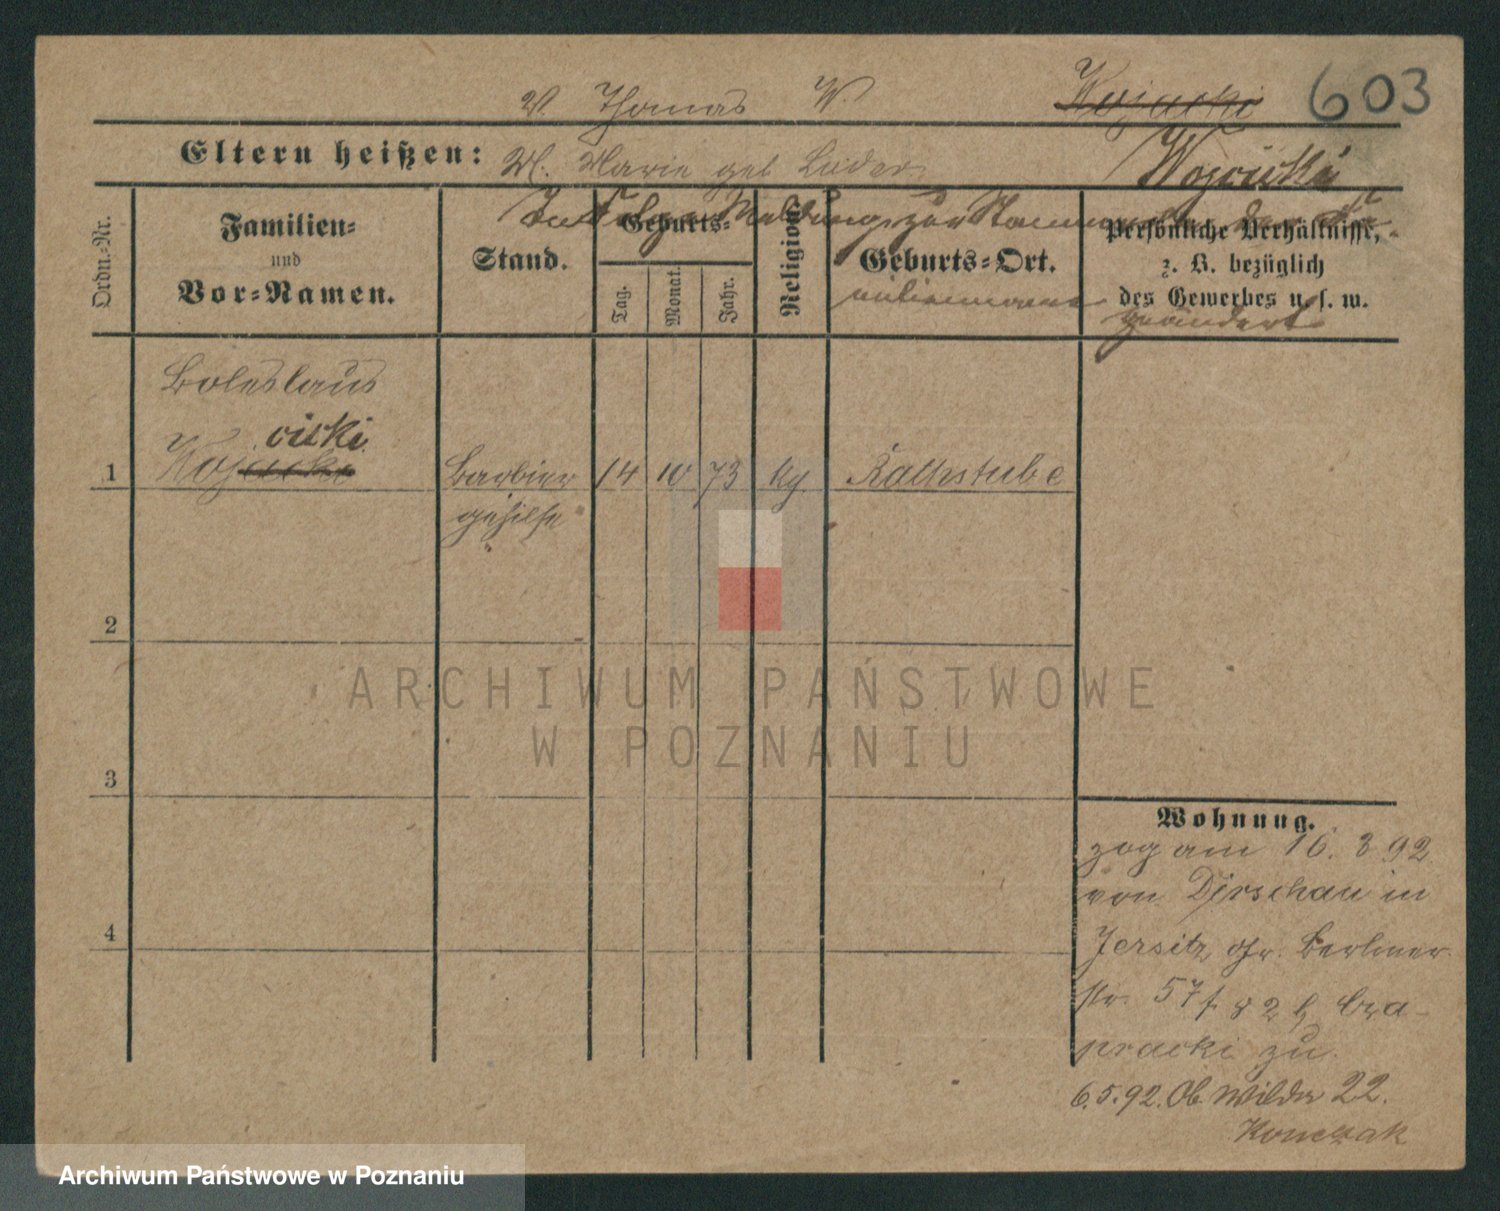 V. Thomas W. Wojacki 603
Eltern heißen: M. Marie geb Lüder Wojciski
In Folge Meldung zur
Ordn.-Nr.
Familien-
und
Vor-Namen.
Stand.
Geburts-
Tag.
Monat.
Jahr.
Religion.
Geburts-Ort.
Persönliche Verhältnisse,
z. B. bezüglich
des Gewerbes u. s. w.
geändert
Boleslaus
ciski
1 Wojacki Barbier 14 10 73 kg Kalkstube
gehilfe
2
3
4
Wohnung.
zog am 16. 3 92
von Dirschau in
Jersitz, Gr. Berliner
str. 57 b. Cza-
pracki zu.
6.5.92. Ob. Wilda 22.
Konczak
ARCHIWUM PAŃSTWOWE
W POZNANIU
Archiwum Państwowe w Poznaniu